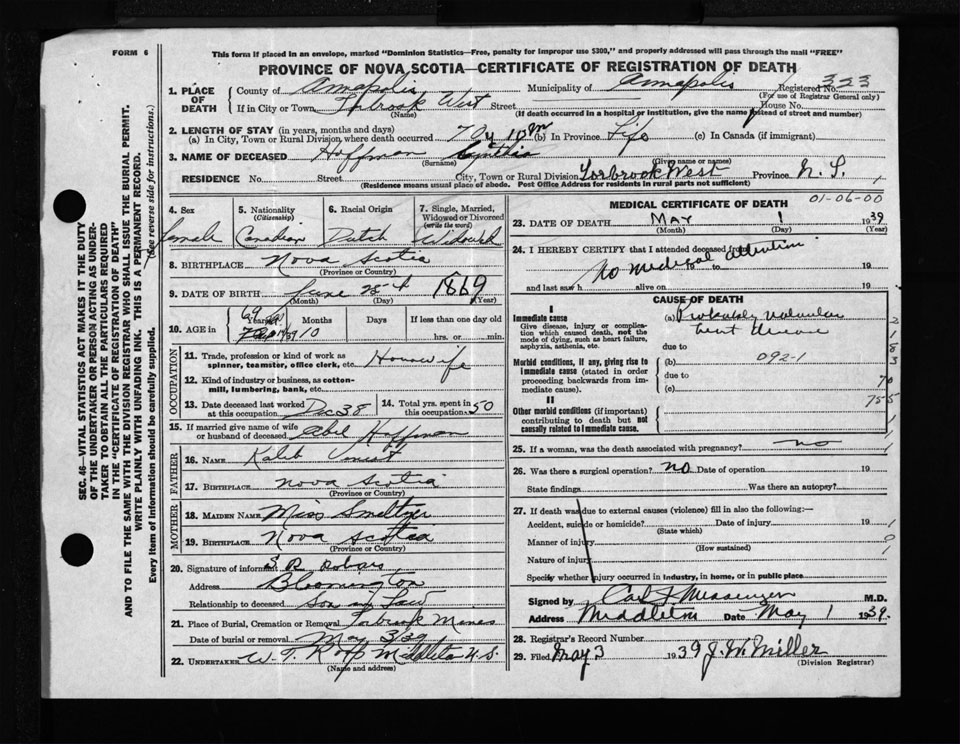 FORM 6
This form if placed in an envelope, marked "Dominion Statistics—Free, penalty for improper use $300," and properly addressed will pass through the mail "FREE"
PROVINCE OF NOVA SCOTIA—CERTIFICATE OF REGISTRATION OF DEATH
1. PLACE OF DEATH County of Annapolis Municipality of Annapolis Registered No. 323
(For use of Registrar General only)
If in City or Town Torbrook West Street House No.
(Name) (If death occurred in a hospital or institution, give the name instead of street and number)
2. LENGTH OF STAY (in years, months and days)
(a) In City, Town or Rural Division where death occurred 70 y 10 m (b) In Province Life (c) In Canada (if immigrant)
3. NAME OF DECEASED Hoffman Cynthia
(Surname) (Given name or names)
RESIDENCE No. Street City, Town or Rural Division Torbrook West Province N. S.
(Residence means usual place of abode. Post Office Address for residents in rural parts not sufficient)
4. Sex female
5. Nationality (Citizenship) Canadian
6. Racial Origin Dutch
7. Single, Married, Widowed or Divorced (write the word) Widowed
8. BIRTHPLACE Nova Scotia
(Province or Country)
9. DATE OF BIRTH June 28th 1869
(Month) (Day) (Year)
10. AGE in Years Months Days If less than one day old
69 10 hrs. or min.
OCCUPATION
11. Trade, profession or kind of work as spinner, teamster, office clerk, etc. Housewife
12. Kind of industry or business, as cotton-mill, lumbering, bank, etc.
13. Date deceased last worked at this occupation Dec 38
14. Total yrs. spent in this occupation 50
15. If married give name of wife or husband of deceased Abel Hoffman
FATHER
16. NAME Kaleb
17. BIRTHPLACE Nova Scotia
(Province or Country)
MOTHER
18. MAIDEN NAME Miss Smeltzer
19. BIRTHPLACE Nova Scotia
(Province or Country)
20. Signature of informant S. R.
Address Bloomington
Relationship to deceased Son in Law
21. Place of Burial, Cremation or Removal Torbrook Mines
Date of burial or removal May 3/39
22. UNDERTAKER W. T. Middleton N. S.
(Name and address)
MEDICAL CERTIFICATE OF DEATH
01-06-00
23. DATE OF DEATH May 1 1939
(Month) (Day) (Year)
24. I HEREBY CERTIFY that I attended deceased from
No medical attention
to 19
and last saw h alive on 19
CAUSE OF DEATH
I
Immediate cause
Give disease, injury or complication which caused death, not the mode of dying, such as heart failure, asphyxia, asthenia, etc.
(a) Probably valvular heart disease
due to
Morbid conditions, if any, giving rise to immediate cause (stated in order proceeding backwards from immediate cause).
(b) 092-1
due to
(c)
II
Other morbid conditions (if important) contributing to death but not causally related to immediate cause.
25. If a woman, was the death associated with pregnancy? no
26. Was there a surgical operation? no Date of operation 19
State findings Was there an autopsy?
27. If death was due to external causes (violence) fill in also the following:—
Accident, suicide or homicide? Date of injury 19
(State which)
Manner of injury
(How sustained)
Nature of injury
Specify whether injury occurred in industry, in home, or in public place
Signed by Carl Messenger M.D.
Address Middleton Date May 1 1939.
28. Registrar's Record Number
29. Filed May 3 1939 J. W. Miller
(Division Registrar)
SEC. 46—VITAL STATISTICS ACT MAKES IT THE DUTY
OF THE UNDERTAKER OR PERSON ACTING AS UNDER-
TAKER TO OBTAIN ALL THE PARTICULARS REQUIRED
IN THE "CERTIFICATE OF REGISTRATION OF DEATH"
AND TO FILE THE SAME WITH THE DIVISION REGISTRAR WHO SHALL ISSUE THE BURIAL PERMIT.
WRITE PLAINLY WITH UNFADING INK. THIS IS A PERMANENT RECORD.
Every item of information should be carefully supplied. (See reverse side for instructions.)